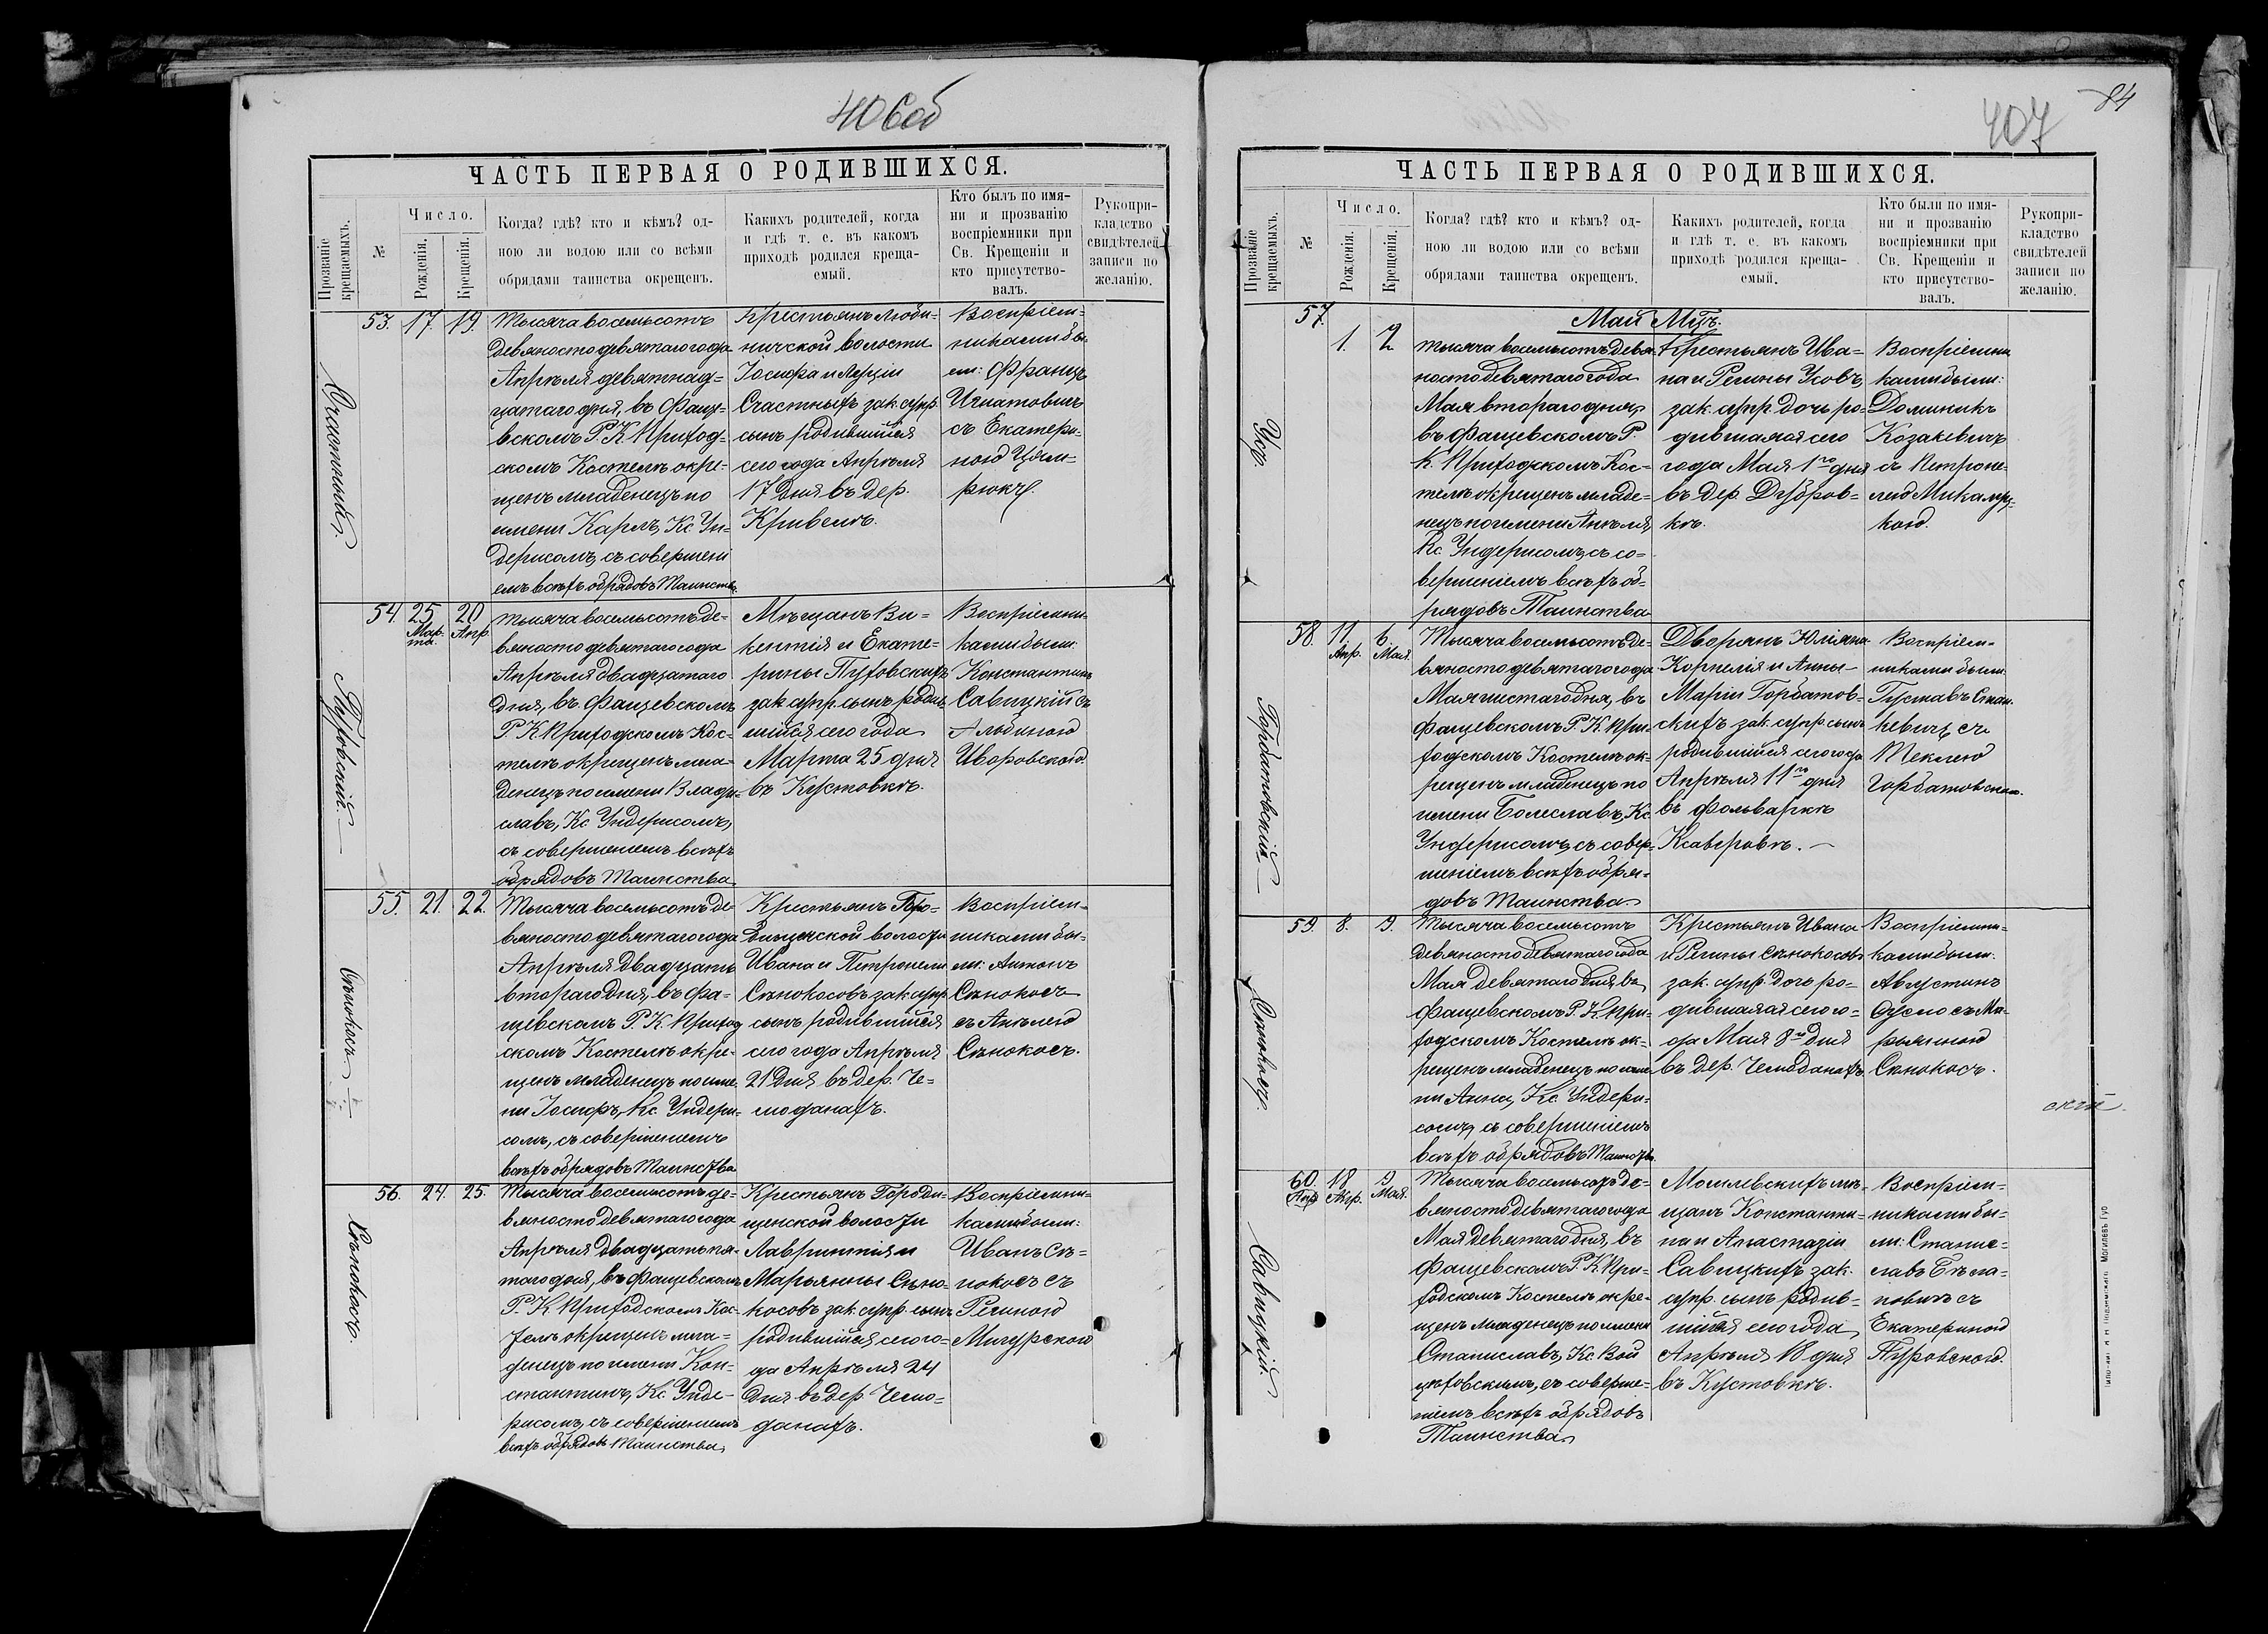 406об
ЧАСТЬ ПЕРВАЯ О РОДИВШИХСЯ.
Прозваніе крещаемыхъ.
№
Число.
Рожденія.
Крещенія.
Когда? гдѣ? кто и кѣмъ? од-
ною ли водою или со всѣми
обрядами таинства окрещенъ.
Какихъ родителей, когда
и гдѣ т. е. въ какомъ
приходѣ родился креща-
емый.
Кто былъ по имя-
ни и прозванію
воспріемники при
Св. Крещеніи и
кто присутство-
валъ.
Рукопри-
кладство
свидѣтелей
записи по
желанію.
Счастный.
53. 17. 19.
Тысяча восемьсотъ
девяносто девятаго года
Апрѣля девятнад-
цатаго дня, въ Фаще-
вскомъ Р. К. Приход-
скомъ Костелѣ окре-
щенъ младенецъ по
имени Карлъ, Кс. Ун-
дерисомъ, съ совершені
емъ всѣхъ обрядовъ Таинства.
Крестьянъ Люби-
нической волости
Іосифа и Луціи
Счастныхъ зак. супр.
сынъ родившійся
сего года Апрѣля
17 дня въ дер.
Кривелѣ.
Воспріем-
никами бы-
ли: Францъ
Игнатовичъ
съ Екатери-
ною
54. 25 Марта. 20 Апр.
Тысяча восемьсотъ де-
вяносто девятаго года
Апрѣля двадцатаго
дня, въ Фащевскомъ
Р. К. Приходскомъ Кос-
телѣ окрещенъ мла-
денецъ по имени Влади-
славъ, Кс. Ундерисомъ,
съ совершеніемъ всѣхъ
обрядовъ Таинства.
Мѣщанъ Ви-
кентія и Екате-
рины
зак. супр. сынъ родив-
шійся сего года
Марта 25 дня
въ Кустовкѣ.
Воспріемни-
ками были:
Константинъ
Савицкій съ
Альбиною
55. 21. 22.
Сѣнокосъ
Тысяча восемьсотъ де-
вяносто девятаго года
Апрѣля двадцать
втораго дня, въ Фа-
щевскомъ Р. К. Приход
скомъ Костелѣ окре-
щенъ младенецъ по име-
ни Іосифъ, Кс. Ундери-
сомъ, съ совершеніемъ
всѣхъ обрядовъ Таинства
Крестьянъ Горо-
дищенской волости
Ивана и Петронели
Сѣнокосовъ зак. супр.
сынъ родившійся
сего года Апрѣля
21 дня въ дер. Че-
моданахъ.
Воспріем-
никами бы-
ли: Антонъ
Сѣнокосъ
съ Анѣлею
Сѣнокосъ.
56. 24. 25.
Сѣнокосъ.
Тысяча восемьсотъ де-
вяносто девятаго года
Апрѣля двадцать пя-
таго дня, въ Фащевскомъ
Р. К. Приходскомъ Кос-
телѣ окрещенъ мла-
денецъ по имени Кон-
стантинъ, Кс. Унде-
рисомъ, съ совершеніемъ
всѣхъ обрядовъ Таинства.
Крестьянъ Городи-
щенской волости
Лаврентія и
Марьянны Сѣно-
косовъ зак. супр. сынъ
родившійся сего го-
да Апрѣля 24
дня въ дер. Чемо-
данахъ.
Воспріемни-
ками были:
Иванъ Сѣ-
нокосъ съ
Региною
84
407
ЧАСТЬ ПЕРВАЯ О РОДИВШИХСЯ.
Прозваніе крещаемыхъ.
№
Число.
Рожденія.
Крещенія.
Когда? гдѣ? кто и кѣмъ? од-
ною ли водою или со всѣми
обрядами таинства окрещенъ.
Какихъ родителей, когда
и гдѣ т. е. въ какомъ
приходѣ родился креща-
емый.
Кто были по имя-
ни и прозванію
воспріемники при
Св. Крещеніи и
кто присутство-
валъ.
Рукопри-
кладство
свидѣтелей
записи по
желанію.
Май Мцъ.
57. 1. 2
Усъ.
Тысяча восемьсотъ девя-
носто девятаго года
Мая втораго дня,
въ Фащевскомъ Р.
К. Приходскомъ Кос-
телѣ окрещенъ младе-
нецъ по имени Анѣля,
Кс. Ундерисомъ, съ со-
вершеніемъ всѣхъ об-
рядовъ Таинства
Крестьянъ Ива-
на и Регины Усовъ,
зак. супр. дочь ро-
дившаяся сего
года Мая 1го дня
въ дер. Дубров-
кѣ.
Воспріемни
ками были:
Доминикъ
Козакевичъ
съ Петроне-
лею
58. 11 Апр. 6. Мая.
Горбатовскій
Тысяча восемьсотъ де-
вяносто девятаго года
Мая шестаго дня, въ
Фащевскомъ Р. К. При-
ходскомъ Костелѣ ок-
рещенъ младенецъ по
имени Болеславъ, Кс
Ундерисомъ, съ совер-
шеніемъ всѣхъ обря-
довъ Таинства.
Дворянъ Юліяна
Корнелія и Анны-
Маріи Горбатов-
скихъ зак. супр. сынъ
родившійся сего года
Апрѣля 11го дня
въ фольваркѣ
Ксаверовкѣ.
Воспріем-
никами были:
Густавъ Стан-
кевичъ съ
Теклею
Горбатовскою.
59. 8. 9.
Сѣнокосъ.
Тысяча восемьсотъ
девяносто девятаго года
Мая девятаго дня, въ
Фащевскомъ Р. К. При-
ходскомъ Костелѣ ок-
рещенъ младенецъ по име
ни Анна, Кс. Ундери-
сомъ, съ совершеніемъ
всѣхъ обрядовъ Таинства.
Крестьянъ Ивана
и Регины Сѣнокосовъ
зак. супр. дочь ро-
дившаяся сего го-
да Мая 8го дня
въ дер. Чемоданахъ.
Воспріемни-
ками были:
Августинъ
съ Ма-
рьянною
Сѣнокосъ.
60. Апр. 18 Апр. 9 Мая.
Савицкій.
Тысяча восемьсотъ де-
вяносто девятаго года
Мая девятаго дня, въ
Фащевскомъ Р. К. При-
ходскомъ Костелѣ окре-
щенъ младенецъ по имени
Станиславъ, Кс. Вой
цѣховскимъ, съ соверше-
ніемъ всѣхъ обрядовъ
Таинства.
Могилевскихъ мѣ-
щанъ Константи-
на и Анастазіи
Савицкихъ зак.
супр. сынъ родив-
шійся сего года
Апрѣля 18 дня
въ Кустовкѣ.
Воспріем-
никами бы-
ли: Станис-
лавъ
съ
Екатериною